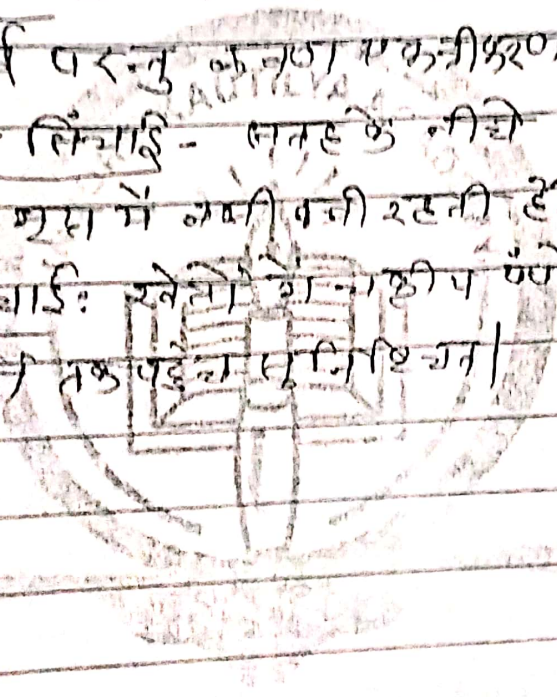 परन्तु लवण एकत्रीकरण
सिंचाई - सतह के नीचे
मृदा में नमी बनी रहती है
खेतों में चक्रीय पंप
तक पहुँच सुनिश्चित।